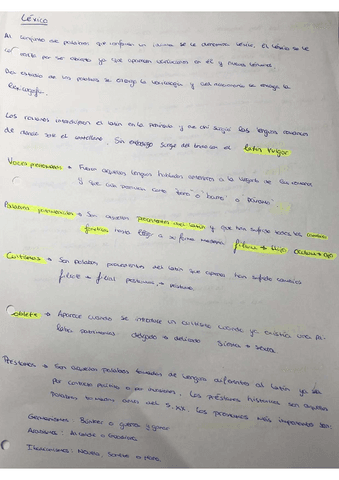 Léxico
Al conjunto de palabras que conforma un idioma se le denomina léxico. El léxico se le
por ser abierto ya que aparecen variaciones en él y nuevos términos.
Del estudio de las palabras se encarga la lexicología y del diccionario se encarga la
lexicografía.
Los romanos introdujeron el latín en la península y de ahí surgen las lenguas romances
de donde sale el castellano. Sin embargo surge del hablado en el latín vulgar
Voces prerromanas → Fueron aquellas lenguas habladas anteriores a la llegada de los romanos
y que han perdurado como "barro" o "páramo"
Palabras patrimoniales → Son aquellas procedentes del latín y que han sufrido todos los cambios
fonéticos hasta llegar a su forma moderna. filium → hijo
Cultismos → Son palabras provenientes del latín que apenas han sufrido cambios
filial
Doblete → Aparece cuando se introduce un cultismo cuando ya existía una
palabra patrimonial. delgado → delicado
Préstamos → Son aquellas palabras tomadas de lenguas diferentes al latín ya sea
por contacto político o por invasiones. Los préstamos históricos son aquellas
palabras tomadas antes del s. XX. Los préstamos más importantes son:
Germanismos: guerra y ganar
Arabismos: Alcalde o
Italianismos: Novela, soneto o